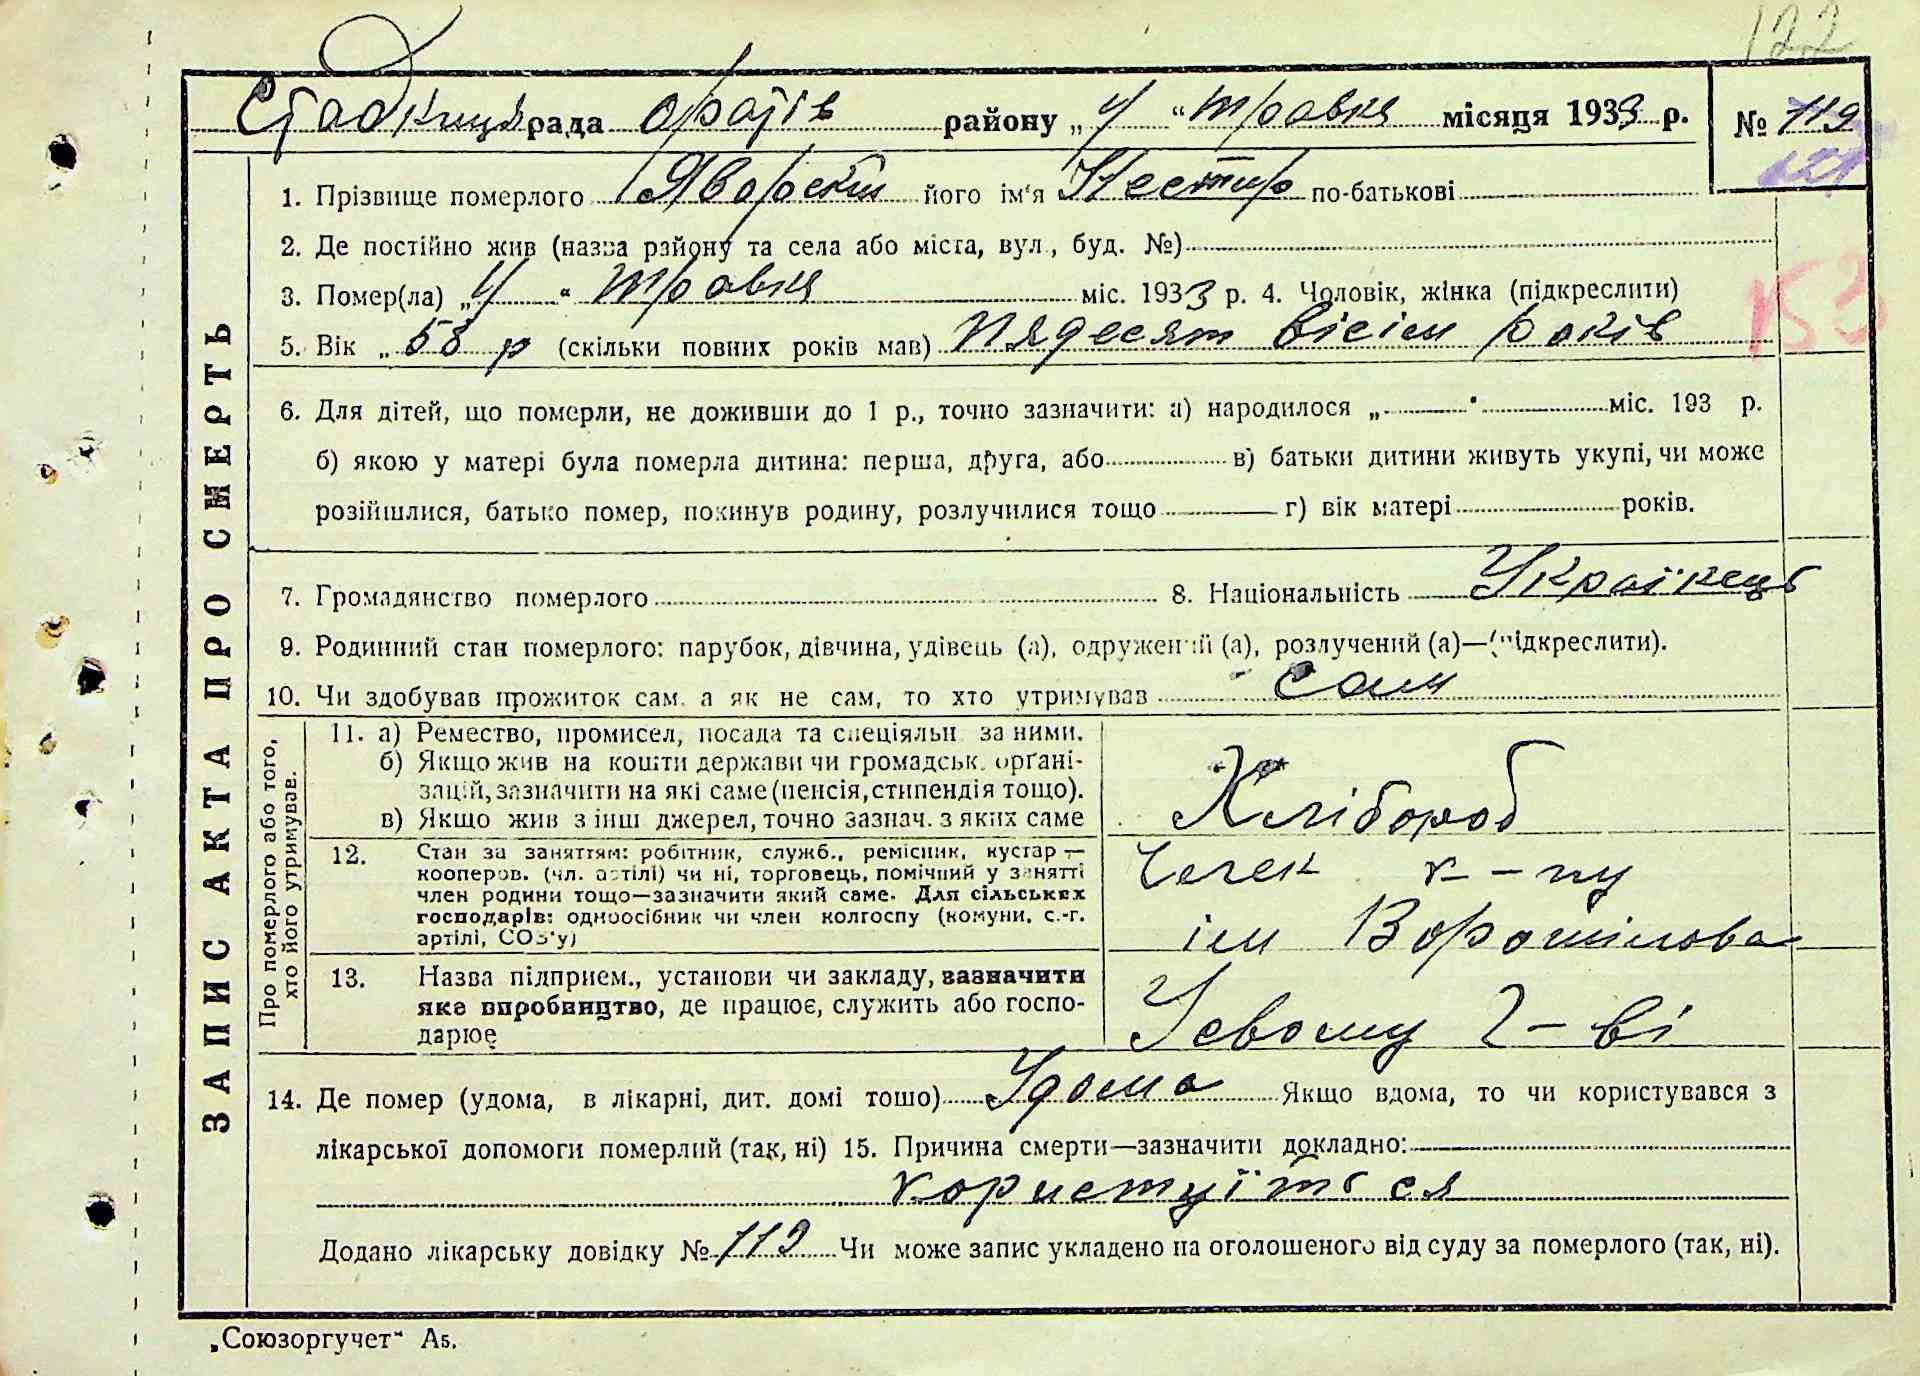 122
Стадниця рада Оратів району „4" травня місяця 1933 р. № 119
121
ЗАПИС АКТА ПРО СМЕРТЬ
1. Прізвище померлого Яворский його ім'я Нестир по-батькові
2. Де постійно жив (назва району та села або міста, вул., буд. №)
3. Помер(ла) „4" травня міс. 1933 р. 4. Чоловік, жінка (підкреслити)
153
5. Вік „58 р (скільки повних років мав) пядесят вісім років
6. Для дітей, що померли, не доживши до 1 р., точно зазначити: а) народилося „ " міс. 193 р.
б) якою у матері була померла дитина: перша, друга, або в) батьки дитини живуть укупі, чи може
розійшлися, батько помер, покинув родину, розлучилися тощо г) вік матері років.
7. Громадянство померлого 8. Національність Українець
9. Родинний стан померлого: парубок, дівчина, удівець (а), одружений (а), розлучений (а)—(підкреслити).
10. Чи здобував прожиток сам, а як не сам, то хто утримував сам
Про померлого або того, хто його утримував.
11. а) Ремество, промисел, посада та спеціяльн. за ними.
б) Якщо жив на кошти держави чи громадськ. орґані-
зацій, зазначити на які саме (пенсія, стипендія тощо).
в) Якщо жив з інш джерел, точно зазнач. з яких саме
Хлібороб
12. Стан за заняттям: робітник, служб., ремісник, кустар —
кооперов. (чл. артілі) чи ні, торговець, помічний у занятті
член родини тощо—зазначити який саме. Для сільських
господарів: одноосібник чи член колгоспу (комуни, с.-г.
артілі, СОЗ'у)
Челен к-пу
ім Ворошилова
13. Назва підприєм., установи чи закладу, зазначити
яке виробництво, де працює, служить або госпо-
дарює
У свому г-ві
14. Де помер (удома, в лікарні, дит. домі тошо) Удома Якщо вдома, то чи користувався з
лікарської допомоги померлий (так, ні) 15. Причина смерти—зазначити докладно:
користуїться
Додано лікарську довідку № 119 Чи може запис укладено на оголошеного від суду за померлого (так, ні).
„Союзоргучет" А5.